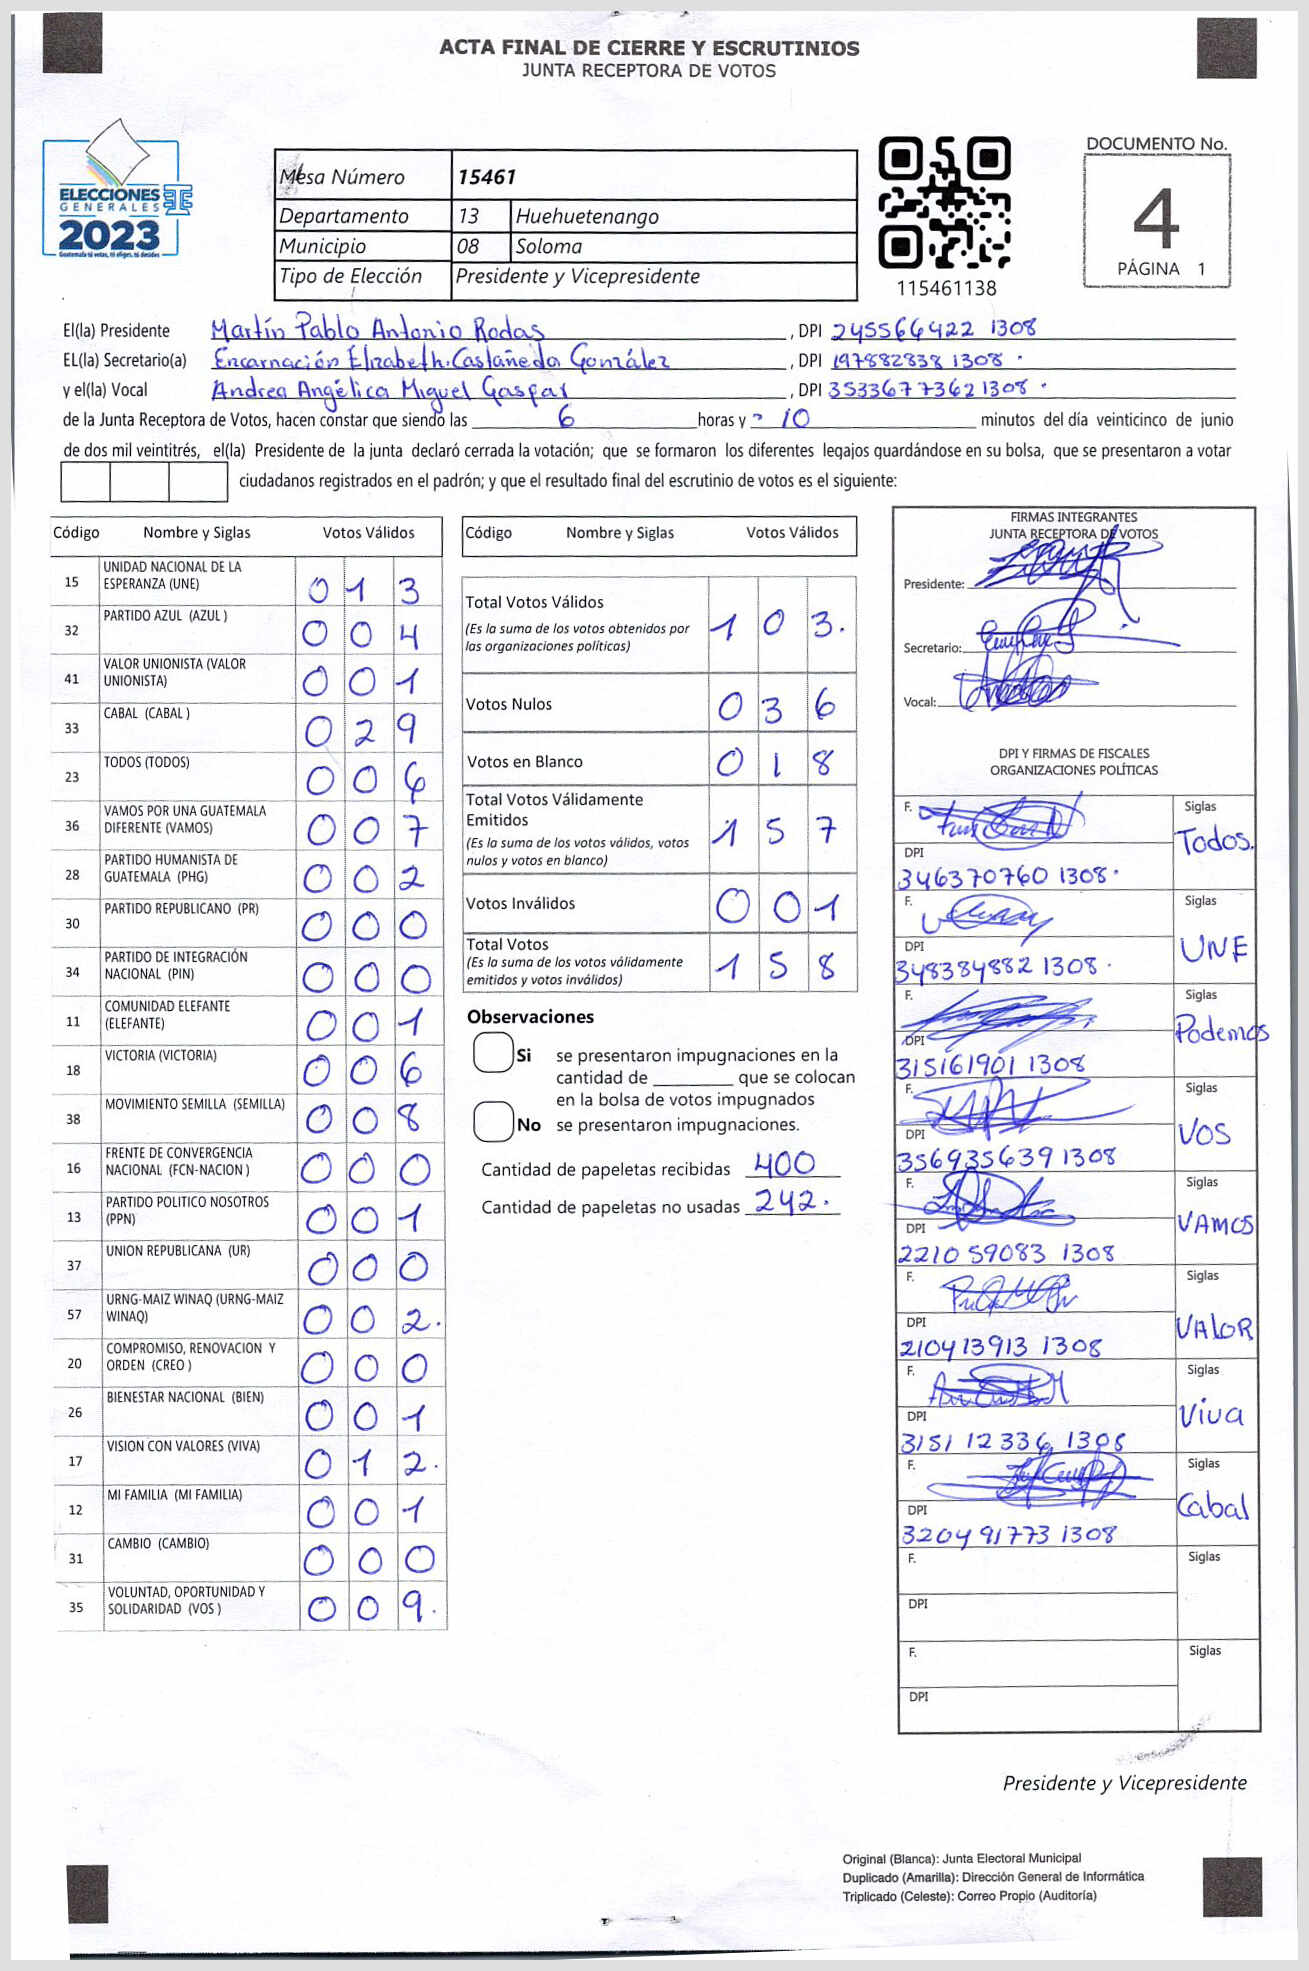 ACTA FINAL DE CIERRE Y ESCRUTINIOS
JUNTA RECEPTORA DE VOTOS
ELECCIONES
GENERALES
2023
Guatemala tú votas, tú eliges, tú decides
Mesa Número 15461
Departamento 13 Huehuetenango
Municipio 08 Soloma
Tipo de Elección Presidente y Vicepresidente
115461138
DOCUMENTO No.
4
PÁGINA 1
El(la) Presidente Martín Pablo Antonio Rodas, DPI 245566422 1308
EL(la) Secretario(a) Encarnación Elizabeth Castañeda González, DPI 197882838 1308
y el(la) Vocal Andrea Angélica Miguel Gaspar, DPI 3533677362 1308
de la Junta Receptora de Votos, hacen constar que siendo las 6 horas y 10 minutos del día veinticinco de junio
de dos mil veintitrés, el(la) Presidente de la junta declaró cerrada la votación; que se formaron los diferentes legajos guardándose en su bolsa, que se presentaron a votar
ciudadanos registrados en el padrón; y que el resultado final del escrutinio de votos es el siguiente:
Código Nombre y Siglas Votos Válidos
15 UNIDAD NACIONAL DE LA ESPERANZA (UNE) 0 1 3
32 PARTIDO AZUL (AZUL ) 0 0 4
41 VALOR UNIONISTA (VALOR UNIONISTA) 0 0 1
33 CABAL (CABAL ) 0 2 9
23 TODOS (TODOS) 0 0 6
36 VAMOS POR UNA GUATEMALA DIFERENTE (VAMOS) 0 0 7
28 PARTIDO HUMANISTA DE GUATEMALA (PHG) 0 0 2
30 PARTIDO REPUBLICANO (PR) 0 0 0
34 PARTIDO DE INTEGRACIÓN NACIONAL (PIN) 0 0 0
11 COMUNIDAD ELEFANTE (ELEFANTE) 0 0 1
18 VICTORIA (VICTORIA) 0 0 6
38 MOVIMIENTO SEMILLA (SEMILLA) 0 0 8
16 FRENTE DE CONVERGENCIA NACIONAL (FCN-NACION ) 0 0 0
13 PARTIDO POLITICO NOSOTROS (PPN) 0 0 1
37 UNION REPUBLICANA (UR) 0 0 0
57 URNG-MAIZ WINAQ (URNG-MAIZ WINAQ) 0 0 2.
20 COMPROMISO, RENOVACION Y ORDEN (CREO ) 0 0 0
26 BIENESTAR NACIONAL (BIEN) 0 0 1
17 VISION CON VALORES (VIVA) 0 1 2.
12 MI FAMILIA (MI FAMILIA) 0 0 1
31 CAMBIO (CAMBIO) 0 0 0
35 VOLUNTAD, OPORTUNIDAD Y SOLIDARIDAD (VOS ) 0 0 9.
Código Nombre y Siglas Votos Válidos
Total Votos Válidos 1 0 3.
(Es la suma de los votos obtenidos por
las organizaciones políticas)
Votos Nulos 0 3 6
Votos en Blanco 0 1 8
Total Votos Válidamente
Emitidos 1 5 7
(Es la suma de los votos válidos, votos
nulos y votos en blanco)
Votos Inválidos 0 0 1
Total Votos 1 5 8
(Es la suma de los votos válidamente
emitidos y votos inválidos)
Observaciones
Si se presentaron impugnaciones en la
cantidad de ________ que se colocan
en la bolsa de votos impugnados
No se presentaron impugnaciones.
Cantidad de papeletas recibidas 400
Cantidad de papeletas no usadas 242.
FIRMAS INTEGRANTES
JUNTA RECEPTORA DE VOTOS
Presidente:
Secretario:
Vocal:
DPI Y FIRMAS DE FISCALES
ORGANIZACIONES POLÍTICAS
F. Siglas
Todos.
DPI
346370760 1308.
F. Siglas
UNE
DPI
348384882 1308.
F. Siglas
Podemos
DPI
315161901 1308
F. Siglas
VOS
DPI
356935639 1308
F. Siglas
VAMOS
DPI
2210 59083 1308
F. Siglas
VALOR
DPI
210413913 1308
F. Siglas
Viva
DPI
3151 12336 1308
F. Siglas
Cabal
DPI
3204 91773 1308
F. Siglas
DPI
F. Siglas
DPI
Presidente y Vicepresidente
Original (Blanca): Junta Electoral Municipal
Duplicado (Amarilla): Dirección General de Informática
Triplicado (Celeste): Correo Propio (Auditoría)